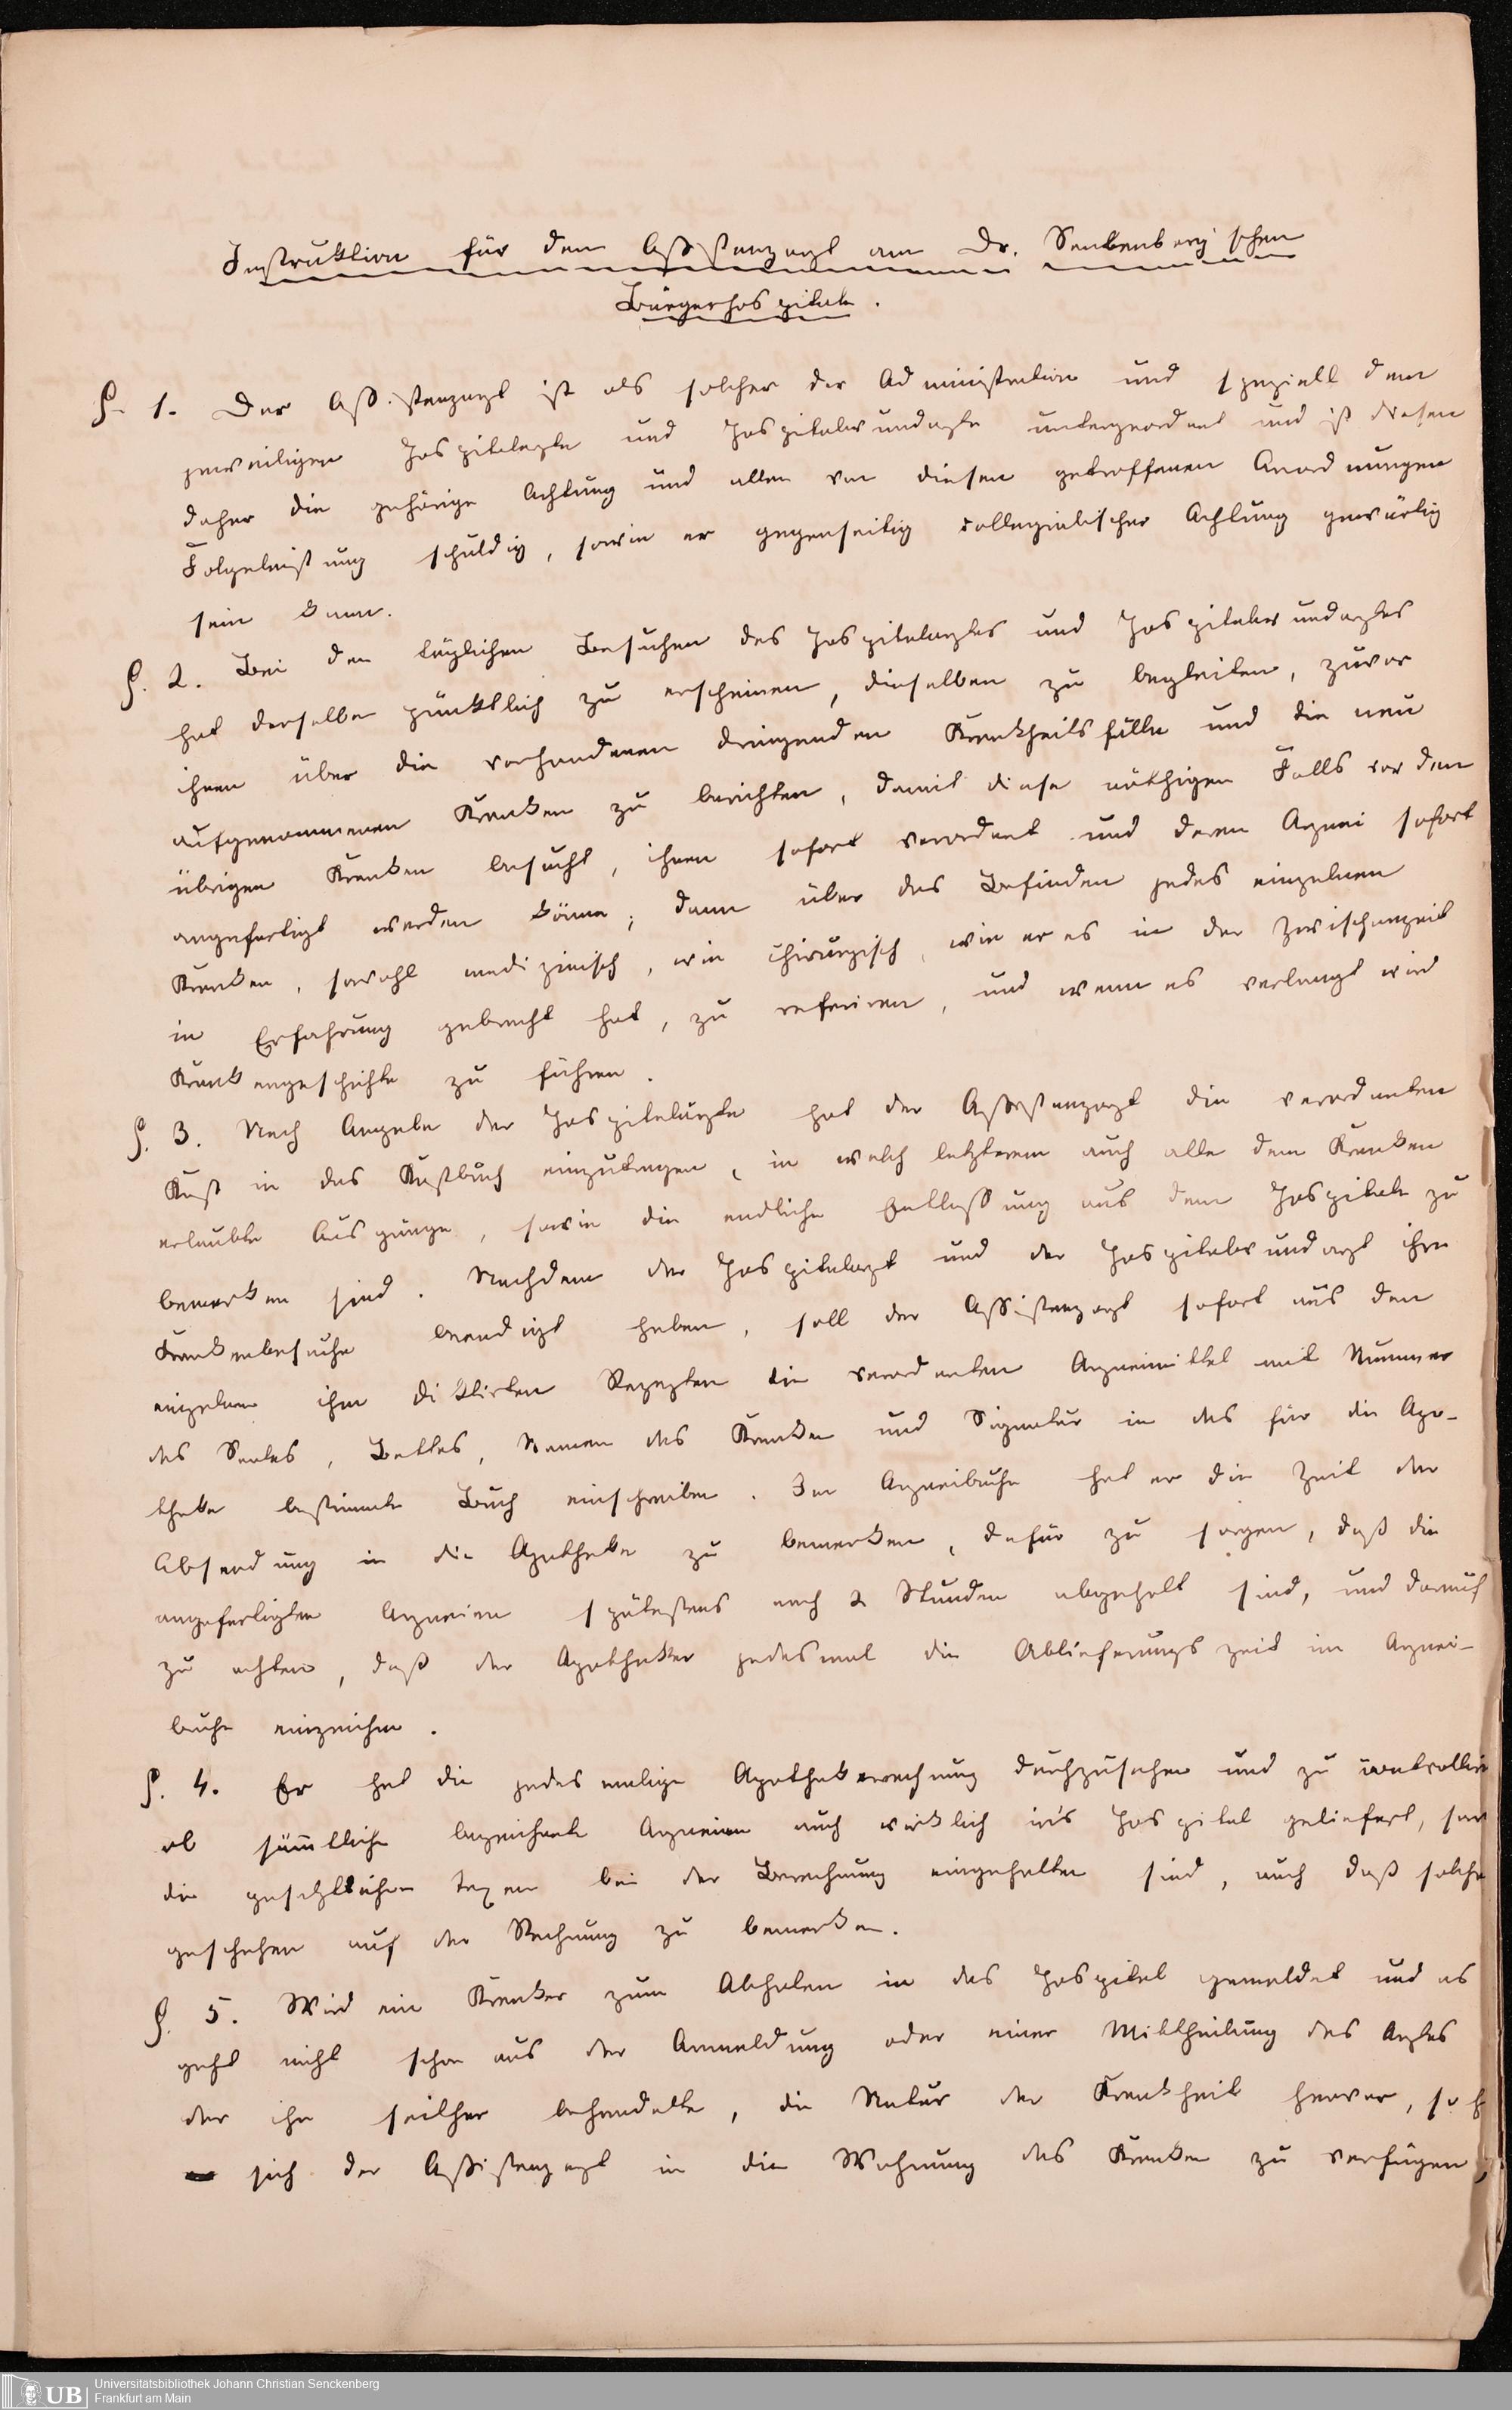 Instruktion für den Assistenzarzt am Dr. Senkenberg'schen
Bürgerhospitale.
§. 1. Der Assistenzarzt ist als solcher der Administration und speziell dem
jeweiligen Hospitalarzte und Hospitalwundarzte untergeordnet und ist diesen
daher die gehörige Achtung und allen von diesen getroffenen Anordnungen
Folgeleistung schuldig, sowie er gegenseitig collegialischer Achtung gewärtig
sein kann.
§. 2. Bei den täglichen Besuchen des Hospitalarztes und Hospitalwundarztes
hat derselbe pünktlich zu erscheinen, dieselben zu begleiten, zuvor
ihnen über die vorhandenen dringenden Krankheitsfälle und die neu
aufgenommenen Kranken zu berichten, damit diese nöthigen Falls vor den
übrigen Kranken besucht, ihnen sofort verordnet und deren Arznei sofort
angefertigt werden könne; dann über das Befinden jedes einzelnen
Kranken, sowohl medizinisch, wie chirurgisch, wie er es in der Zwischenzeit
in Erfahrung gebracht hat, zu referiren, und wenn es verlangt wird
Krankengeschichte zu führen.
§. 3. Nach Angabe der Hospitalärzte hat der Assistenzarzt die verordneten
Kost in das Kostbuch einzutragen, in welch letzterem auch alle dem Kranken
erlaubte Ausgänge, sowie die endliche Entlassung aus dem Hospitale zu
bemerken sind. Nachdem der Hospitalarzt und der Hospitalwundarzt ihre
Krankenbesuche beendigt haben, soll der Assistenzarzt sofort aus den
einzelnen ihm diktirten Rezepten die verordneten Arzneimittel mit Nummer
des Saales, Bettes, Namen des Kranken und Signatur in das für die Apo-
theke bestimmte Buch einschreiben. Im Arzneibuche hat er die Zeit der
Absendung in die Apotheke zu bemerken, dafür zu sorgen, daß die
angefertigten Arzneien spätestens nach 2 Stunden abgeholt sind, und darauf
zu achten, daß der Apotheker jedesmal die Ablieferungszeit im Arznei-
buche einzeichne.
§. 4. Er hat die jedesmalige Apothekerrechnung durchzusehen und zu controllir
ob sämmtliche bezeichnete Arzneien auch wirklich in's Hospital geliefert, sow
die gesetzlichen Taxen bei der Berechnung eingehalten sind, auch daß solche
geschehen auf der Rechnung zu bemerken.
§. 5. Wird ein Kranker zum Abholen in das Hospital gemeldet und es
geht nicht schon aus der Anmeldung oder einer Mittheilung des Arztes
der ihn seither behandelte, die Natur der Krankheit hervor, so h
sich der Assistenzarzt in die Wohnung des Kranken zu verfügen,
UB
Universitätsbibliothek Johann Christian Senckenberg
Frankfurt am Main